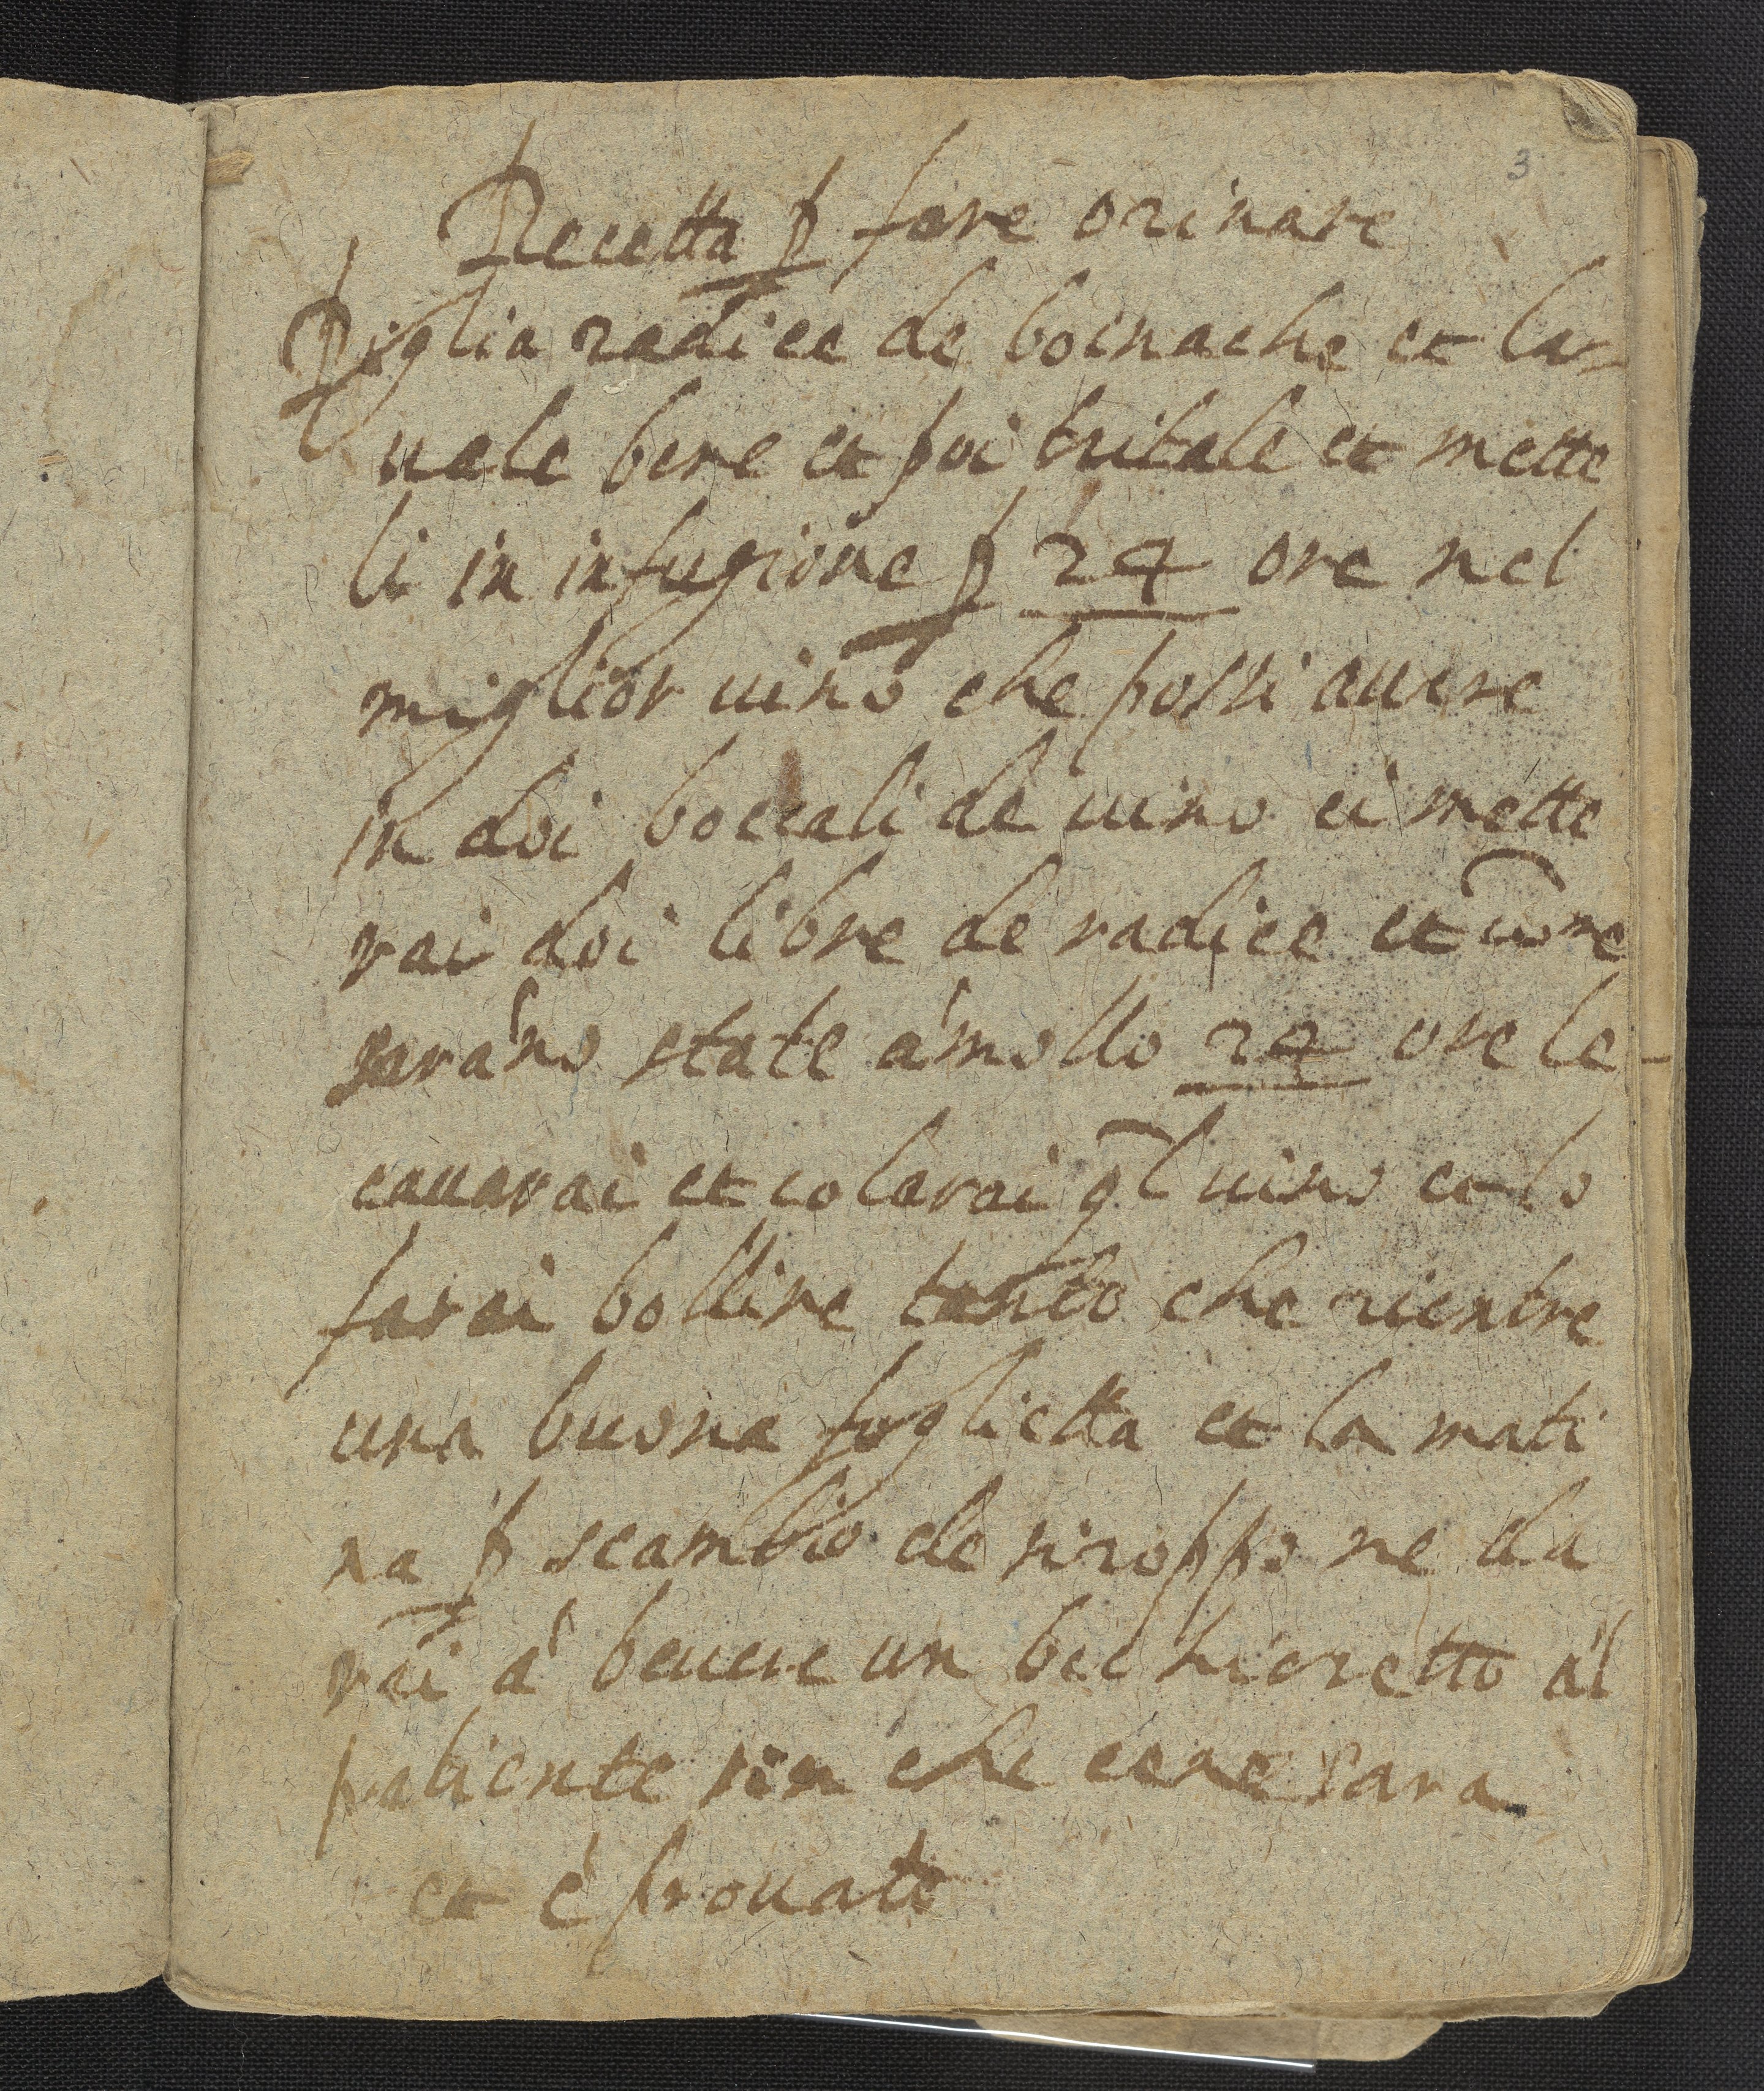 3
Recetta p fare orinare
Piglia radice de boinache et la=
uale bene et poi tritale et mette
li in infugione p 24 ore nel
miglior uino che possi auere
in doi boccali de uino ci mette
rai doi libre de radice et come
saranò state à mollo 24 ore le
cauarai et colarai ql uino et lo
farai bollire tanto che rientre
una buona foglietta et la mati
na p scambio de siroppo ne da
rai à beuere un bichieretto al
patiente sin che cene sara
et è prouato